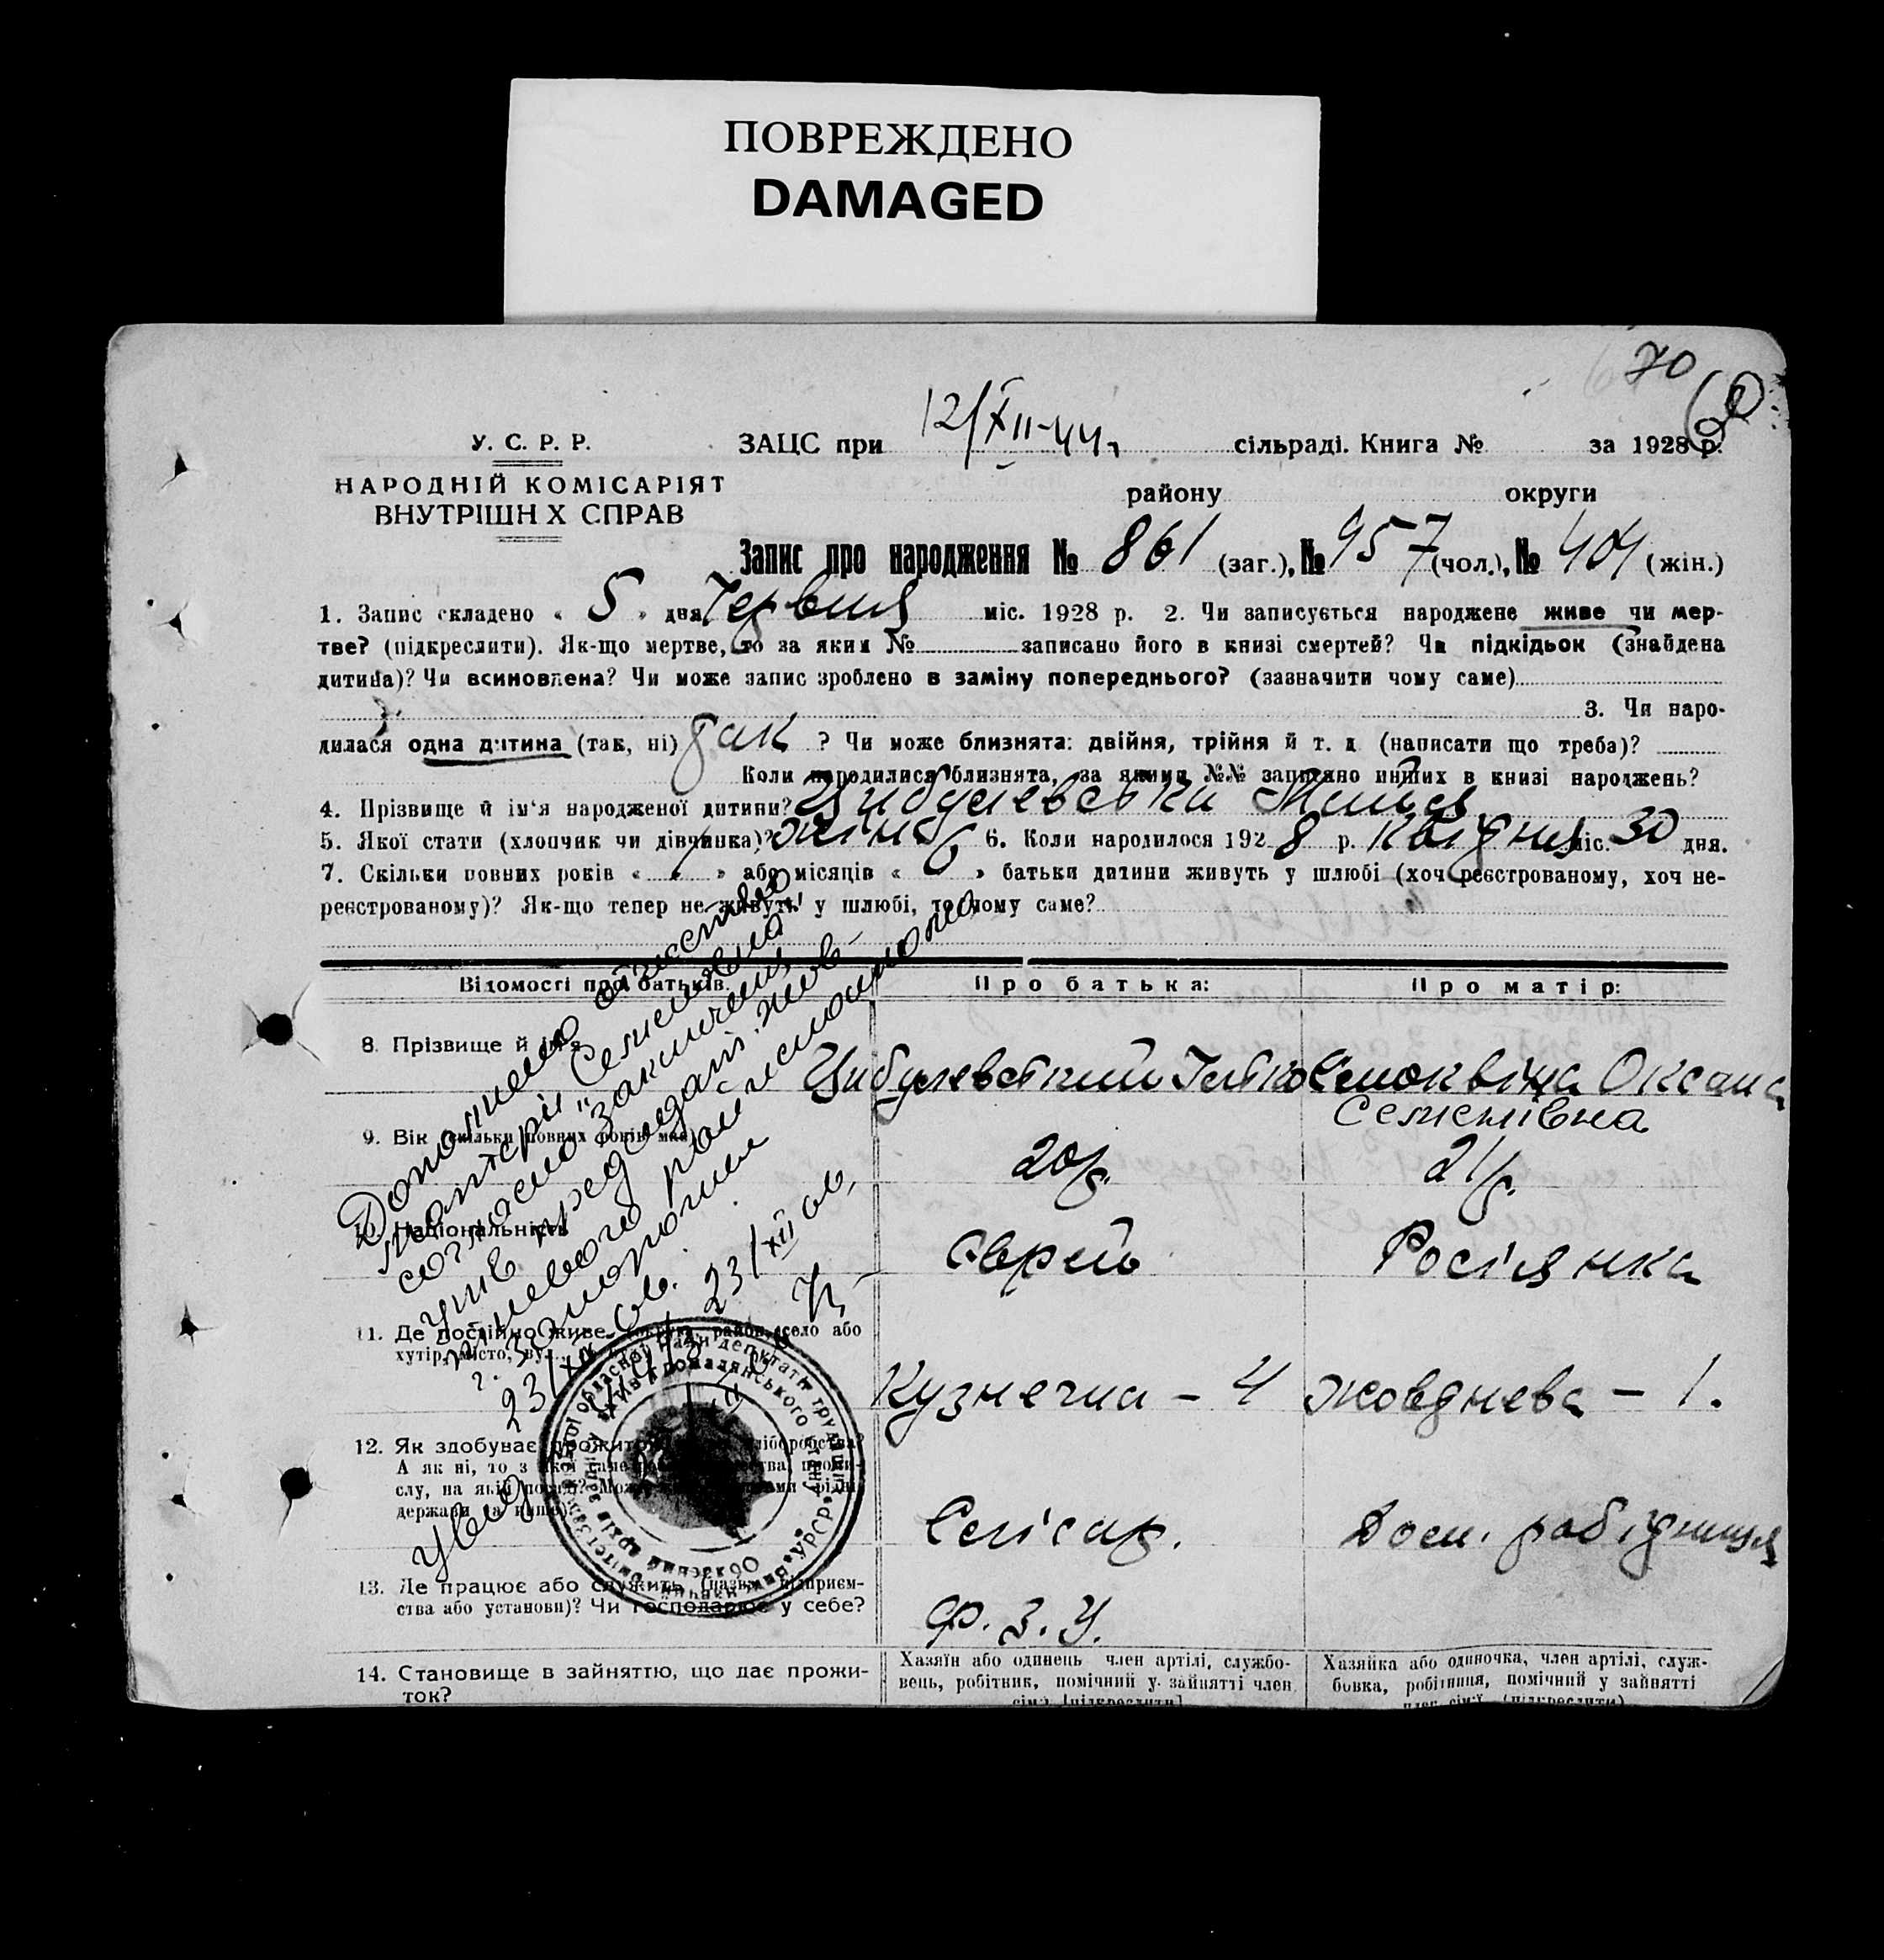 ПОВРЕЖДЕНО
DAMAGED
70
У. С. Р. Р.
ЗАЦС при 12/XII-44г сільраді. Книга № за 1928 р.
НАРОДНІЙ КОМІСАРІЯТ
ВНУТРІШН Х СПРАВ
району округи
Запис про народження № 861 (заг.), № 457 (чол.), № 404 (жін.)
1. Запис складено « 5 » дня Червня міс. 1928 р. 2. Чи записується народжене живе чи мер-
тве? (підкреслити). Як-що мертве, то за яким № записано його в книзі смертей? Чи підкідьок (знайдена
дитина)? Чи всиновлена? Чи може запис зроблено в заміну попереднього? (зазначити чому саме)
3. Чи наро-
дилася одна дитина (так, ні) так ? Чи може близнята: двійня, трійня й т. д. (написати що треба)?
Коли народилися близнята, за якими №№ записано инших в книзі народжень?
4. Прізвище й ім'я народженої дитини? Цибулевська
5. Якої стати (хлопчик чи дівчинка)? жіноч 6. Коли народилося 1928 р. Квітня міс. 30 дня.
7. Скільки повних років « » або місяців « » батьки дитини живуть у шлюбі (хоч реєстрованому, хоч не-
реєстрованому)? Як-що тепер не живуть у шлюбі, то чому саме?
Відомості про батьків. Про батька: Про матір:
8. Прізвище й ім'я
Цибулевський Смоквіна Оксана
Семенівна
9. Вік (скільки повних років має) 20р. 21р.
10. Національність Єврей Росіянка
11. Де постійно живе (округа, район, село або
хутір, місто, вул.,
Кузнечна - 4 Жовднева - 1.
12. Як здобуває прожиток хліборобства?
А як ні, то з якої саме
слу, на якій посаді?
держави та инше)?
Слісар. Дом. робітниця
13. Де працює або служить (назва підприєм-
ства або установи)? Чи господарює у себе?
Ф. З. У.
14. Становище в зайняттю, що дає прожи-
ток?
Хазяїн або одинець член артілі, службо-
вець, робітник, помічний у зайнятті член
сім'ї (підкреслити)
Хазяйка або одиночка, член артілі, служ-
бовка, робітниця, помічний у зайнятті
член сім'ї (підкреслити)
Дополнено отчество
матери „Семеновна"
согласно заключения
утв. председат. Жов-
тневого рай исполкома
г. Запорожья
23/XII